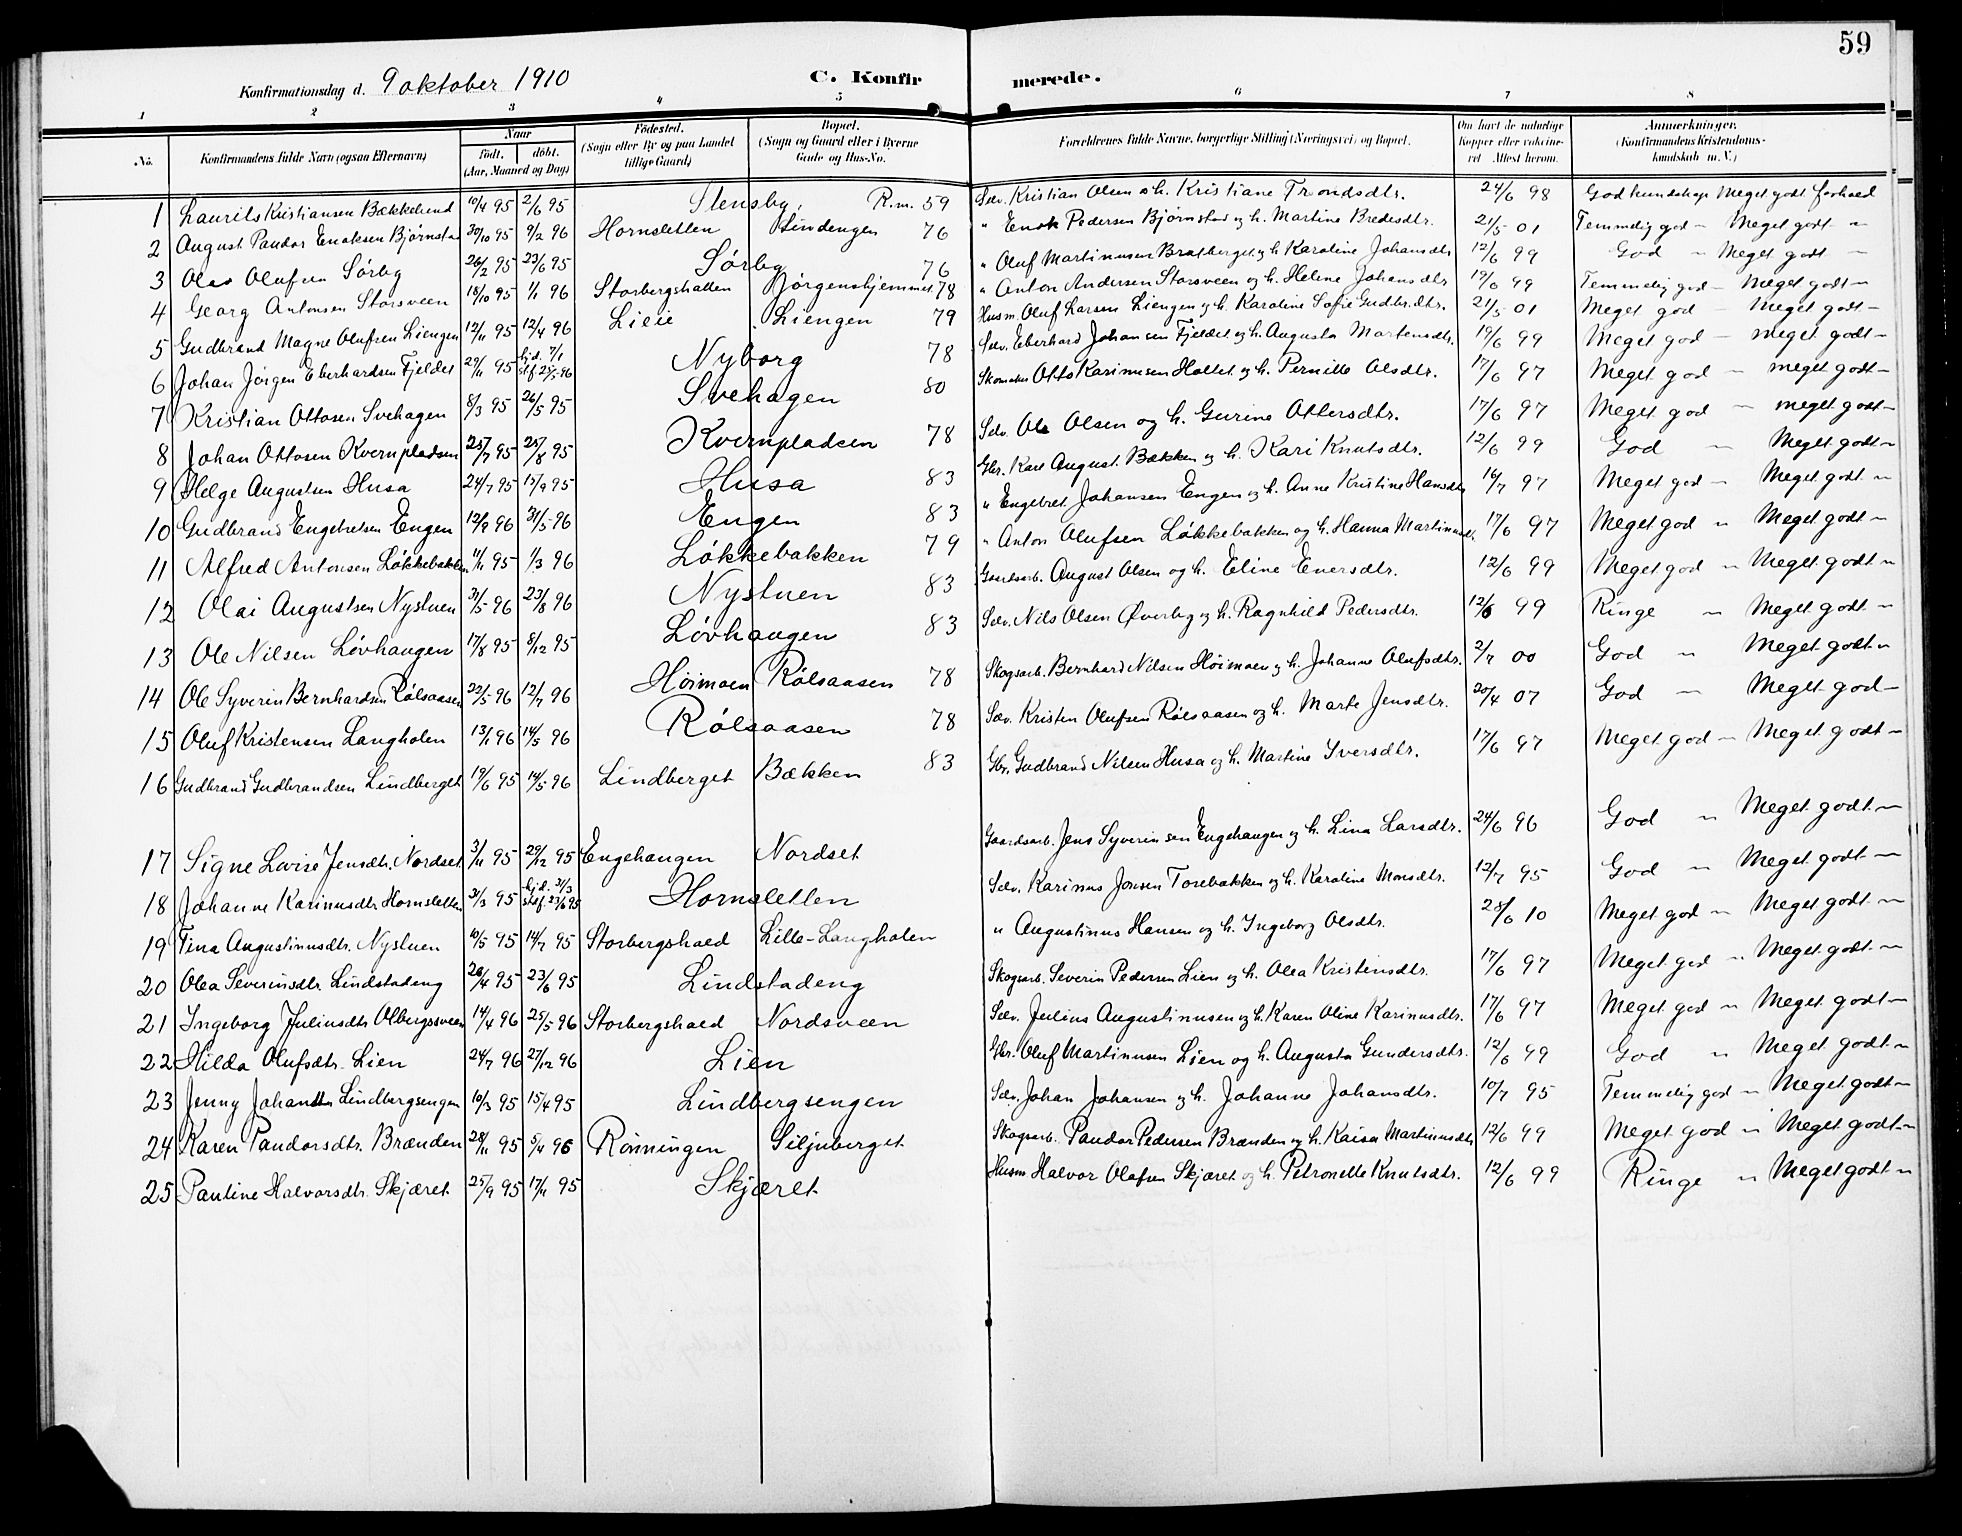 59
Konfirmationsdag d. 9 oktober 1910
C. Konfirmerede.
1 2 3 4 5 6 7 8
No.
Konfirmandens fulde Navn (ogsaa Efternavn)
Naar
födt. döbt.
(Aar, Maaned og Dag)
Födested.
(Sogn eller By og paa Landet
tillige Gaard)
Bopæl.
(Sogn og Gaard eller i Byerne
Gade og Hus-No.
Forældrenes fulde Navne, borgerlige Stilling (Næringsvei) og Bopæl.
Om havt de naturlige
Kopper eller vakcine-
ret Attest herom.
Anmerkninger.
(Konfirmandens Kristendoms-
kundskab m. V.)
1 Laurits Kristiansen Bækkelund 10/4 95 2/6 95 Stensby, R.m. 59 Selv. Kristian Olsen o h. Kristiane Trondsdtr. 24/6 98 God kundskap Meget godt forhold
2 August Pandor Enoksen Bjørnstad 30/10 95 9/2 96 Hornsletten Lindengen 76 " Enok Pedersen Bjørnstad og h. Martine Bredesdtr. 21/5 01 Temmelig god – Meget godt –
3 Olav Olufsen Sörby 26/2 95 23/6 95 Sörby 76 " Oluf Martinusen Bratberget og h. Karoline Johansdtr 12/6 99 God – Meget godt –
4 Georg Antonsen Storsveen 18/10 95 1/1 96 Storbergshatten Jörgenshjemmet 78 " Anton Andersen Storsveen og h. Helene Johansdtr 19/6 99 Temmelig god – Meget godt –
5 Gudbrand Magne Olufsen Liengen 12/11 95 12/4 96 Lieie Liengen 79 Husm. Oluf Larsen Liengen og h. Karoline Sofie Gudbr.dtr. 21/5 01 Meget god Meget godt –
6 Johan Jörgen Eberhardsen Fjeldet 29/11 95 hjd. 7/1 stf 25/5 96 Nyborg 78 Selv. Eberhard Johansen Fjeldet og h. Augusta Martensdtr. 19/6 99 Meget god – meget godt –
7 Kristian Ottosen Svehagen 8/3 95 26/5 95 Svehagen 80 Skomaker Otto Karinusen Holtet og h. Pernille Olsdtr. 17/6 97 Meget god – meget godt –
8 Johan Ottosen Kvernpladsen 25/7 95 25/8 95 Kvernpladsen 78 Selv. Ole Olsen og h. Gurine Ottersdtr. 17/6 97 Meget god – meget godt –
9 Helge Augustsen Husa 24/7 95 15/9 95 Husa 83 Gbr. Karl August Bækken og h. Kari Knutsdtr. 12/6 99 God – Meget godt –
10 Gudbrand Engebretsen Engen 12/9 96 31/5 96 Engen 83 " Engebret Johansen Engen og h. Anne Kristine Hansdtr 16/7 97 Meget god – Meget godt –
11 Alfred Antonsen Lökkebakken 11/11 95 1/3 96 Lökkebakken 79 " Anton Olufsen Lökkebakken og h. Hanna Martinusdtr. 17/6 97 Meget god – Meget godt –
12 Olai Augustsen Nystuen 31/5 96 23/8 96 Nystuen 83 Gaardsarb. August Olsen og h. Eline Enersdtr. 12/6 99 Meget god – Meget godt –
13 Ole Nilsen Lövhaugen 17/8 95 8/12 95 Lövhaugen 83 Selv. Nils Olsen Øverby og h. Ragnhild Pedersdtr. 12/6 99 Ringe – Meget godt –
14 Ole Syverin Bernhardsen Rölsaasen 22/5 96 12/7 96 Höimoen Rölsaasen 78 Skogsarb. Bernhard Nilsen Höimoen og h. Johanne Olufsdtr. 2/7 00 God – Meget godt –
15 Oluf Kristensen Langholen 13/1 96 14/5 96 Rölsaasen 78 Selv. Kristen Olufsen Rölsaasen og h. Marte Jensdtr. 20/4 07 God – Meget god –
16 Gudbrand Gudbrandsen Lindberget 19/6 95 14/5 96 Lindberget Bækken 83 Gbr. Gudbrand Nilsen Husa og h. Martine Iversdtr. 17/6 97 Meget god – Meget godt –
17 Signe Lovise Jensdtr. Nordset 3/11 95 29/12 95 Engehaugen Nordset Gaardsarb. Jens Syverinsen Engehaugen og h. Lina Larsdtr. 24/6 96 God – Meget godt –
18 Johanne Karinusdtr Hornsletten 31/3 95 hjd. 31/3 stf. 23/6 95 Hornsletten Selv. Karinus Jonsen Torebakken og h. Karoline Monsdtr. 12/7 95 God – Meget godt –
19 Tina Augustinusdtr. Nystuen 10/5 95 14/7 95 Storbergshaed Lille-Langholen " Augustinus Hansen og h. Ingeborg Olsdtr. 28/6 10 Meget god – Meget godt –
20 Olea Severinsdtr. Lindstadeng 20/4 95 23/6 95 Lindstadeng Skogsarb. Severin Pedersen Lien og h. Olea Kristensdtr. 17/6 97 Meget god – Meget godt –
21 Ingeborg Juliusdtr Olbergsveen 14/4 96 25/5 96 Storbergshaed Nordsveen Selv. Julius Augustinusen og h. Karen Oline Karinusdtr. 17/6 97 Meget god – Meget godt –
22 Hilda Olufsdtr. Lien 24/7 96 27/12 96 Lien Gbr. Oluf Martinusen Lien og h. Augusta Gundersdtr. 12/6 99 God – Meget godt –
23 Jenny Johansdtr Lindbergsengen 10/3 95 15/4 95 Lindbergsengen Selv. Johan Johansen og h. Johanne Johansdtr. 10/7 95 Temmelig god – Meget godt –
24 Karen Pandorsdtr. Brænden 28/11 95 5/4 96 Rönningen Siljuberget Skogsarb. Pandor Pedersen Brænden og h. Kaisa Martinusdtr 12/6 99 Meget god – Meget godt –
25 Pauline Halvorsdtr. Skjæret 25/9 95 17/11 95 Skjæret Husm Halvor Olafsen Skjæret og h. Petronelle Knutsdtr. 12/6 99 Ringe – Meget godt –